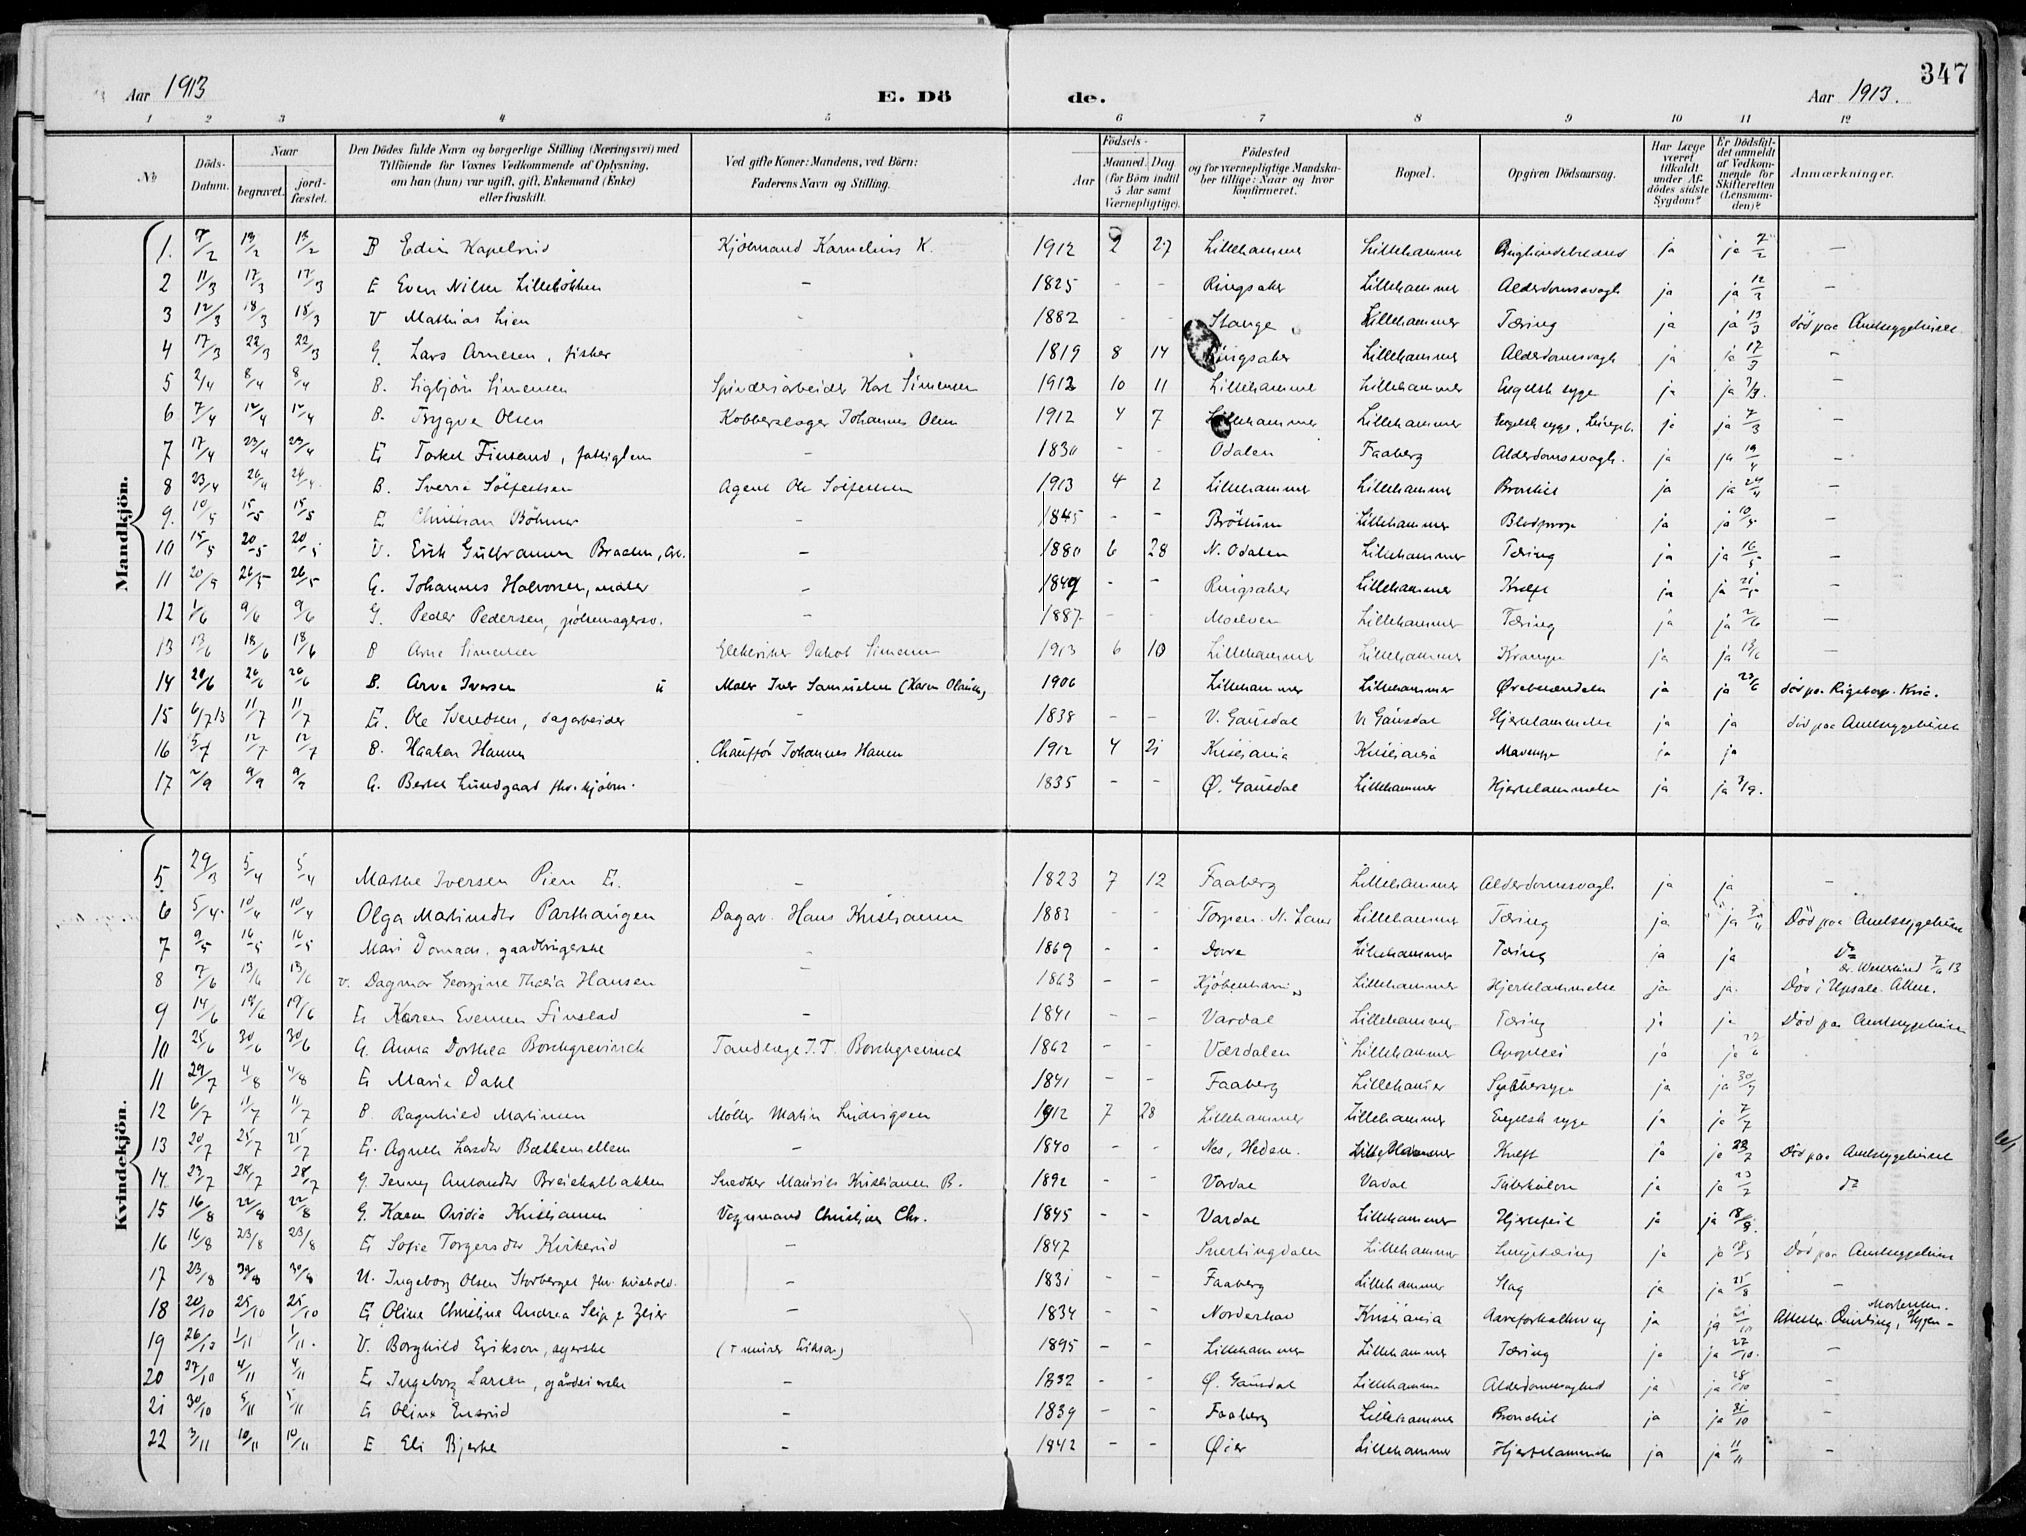 347
Aar 1913
E. Dö de.
Aar 1913.
1 2 3 4 5 6 7 8 9 10 11 12
No
Döds-Datum.
Naar
begravet.
jord-fæstet.
Den Dödes fulde Navn og borgerlige Stilling (Næringsvei) med
Tilföiende for Voxnes Vedkommende af Oplysning,
om han (hun) var ugift, gift, Enkemand (Enke)
eller fraskilt.
Ved gifte Koner: Mandens, ved Börn:
Faderens Navn og Stilling.
Födsels-
Aar
Maaned Dag
(for Börn indtil
5 Aar samt
Værnepligtige).
Födested
og for værnepligtige Mandska-
ber tillige: Naar og hvor
konfirmeret.
Bopæl.
Opgiven Dödsaarsag.
Har Læge
været
tilkaldt
under Af-
dödes sidste
Sygdom?
Er Dödsfal-
det anmeldt
af Vedkom-
mende for
Skifteretten
(Lensman-
den)?
Anmærkninger.
Mandkjön.
1. 7/2 13/2 13/2 B Edin Kapelrud Kjöbmand Karnelius K. 1912 2 27 Lillehammer Lillehammer ja ja 7/2 —
2 11/3 17/3 17/3 E Even Nilsen Lillebökken — 1825 - - Ringsaker Lillehammer Alderdomssvagh ja ja 12/3 —
3 12/3 18/3 18/3 V Mathias Lien 1882 - - Stange Lillehammer Tæring ja ja 13/3 död paa Amtssygehuset
4 17/3 22/3 22/3 G. Lars Arnesen, fisker 1819 8 14 Ringsaker Lillehammer Alderdomsvagh ja ja 17/3 —
5 2/4 8/4 8/4 B. Sigbjörn Simensen Spinderiarbeider Karl Simensen 1912 10 11 Lillehammer Lillehammer Engelsk syge ja ja —
6 7/4 12/4 12/4 B. Trygve Olsen Kobberslager Johannes Olsen 1912 4 7 Lillehammer Lillehammer Engelsk syge, ja ja 7/3 —
7 17/4 23/4 23/4 E. Torkel Finsand, fattiglem — 1830 - - Odalen Faaberg Alderdomssvagh. ja ja 19/4 —
8 23/4 26/4 26/4 B. Sverre Solfestsen Agent Ole Solfestsen 1913 4 2 Lillehammer Lillehammer Bronkit ja ja 24/4 —
9. 10/5 15/5 15/5 E. Christian Böhmer — 1845 - - Bröttum Lillehammer Blodprop ja ja 10/5 —
10 15/5 20/5 20/5 U. Erik Gulbransen Braaten, — 1880 6 28 N. Odalen Lillehammer Tæring ja ja 16/5 —
11 20/5 26/5 26/5 G. Johannes Halvorsen, maler — 1849 - - Ringsaker Lillehammer Kræft ja ja 21/5 —
12 1/6 9/6 9/6 G. Peder Pedersen, — 1887 - - Moelven Lillehammer Tæring ja ja 2/6 —
13 13/6 18/6 18/6 B Arne Simensen Elektriker Jakob Simensen 1913 6 10 Lillehammer Lillehammer Krampe ja ja 13/6 —
14 20/6 26/6 26/6 B. Arve Iversen Maler Iver Samuelsen 1906 Lillehammer Lillehammer ja ja 23/6 död paa
15 6/7 13 11/7 11/7 E. Ole Svendsen, dagarbeider — 1838 - - V. Gausdal V. Gausdal Hjertelammelse ja ja död paa Amtssygehuset
16 5/7 12/7 12/7 B. Haakon Hansen Chauffør Johannes Hansen 1912 4 21 Kristiania Kristiania ja ja
17 2/9 9/9 9/9 G. Bertel Lundgaard fhv. kjöbm. 1835 - - Ø. Gausdal Lillehammer Hjertelammelse ja ja 3/9.
Kvindekjön.
5 29/3 5/4 5/4 Marthe Iversen Pien E. — 1823 7 12 Faaberg Lillehammer Alderdomssvagh ja ja —
6 5/4 10/4 10/4 Olga Martinsdtr Parthaugen Dagarb. Hans Kristiansen 1883 - - Torpen. N. Land Lillehammer Tæring ja ja Död paa Amtssygehuset
7 9/5 16/5 16/5 Mari Domaas, gaardbrugerske — 1869 - - Dovre Lillehammer Tæring ja ja Do
8 7/6 13/6 13/6 V. Dagmar Georgine Thalia Hansen — 1863 Kjöbenhavn Lillehammer Hjertelammelse ja ja. Död i Upsala. Attest.
9 14/6 19/6 19/6 E. Karen Evensen Finstad — 1841 - - Vardal Lillehammer Tæring ja ja Död paa Amtssygehuset
10 25/6 30/6 30/6 G. Anna Dorthea Borchgrevinck Tandlæge I. T. Borchgrevinck 1862 - - Værdalen Lillehammer Apoplexi ja ja
11 29/7 4/8 4/8 E. Marie Dahl 1841 - - Faaberg Lillehammer Sukkersyge ja ja 30/7
12 6/7 11/7 11/7 B. Ragnhild Martinsen Möller Martin Ludvigsen 1912 7 28 Lillehammer Lillehammer Engelsk syge ja ja 7/7
13 20/7 25/7 25/7 E. Agnete Larsdtr Bakkemellem — 1840 - - Nes, Hedem. Lillehammer Kræft ja ja 23/7 Död paa Amtssygehuset
14 23/7 28/7 28/7 G. Jenny Antonsdtr Breiskalbakken Snedker Maurits Kristiansen B. 1892 - - Vardal Vardal Tuberkulose ja ja 23/7 do
15 16/8 22/8 22/8 G. Karen Ovidia Kristiansen Vognmand Christian Chr. 1845 - - Vardal Lillehammer Hjertefeil ja ja 18/8.
16 16/8 23/8 23/8 E. Sofie Torgersdtr Kirkerud — 1847 Snertingdalen Lillehammer Lungetæring ja ja Död paa Amtssygehuset
17 23/8 30/8 30/8 U. Ingeborg Olsen Storberget — 1831 - - Faaberg Lillehammer Slag ja ja 25/8 —
18 20/10 25/10 25/10 E. Oline Christine Andrea Seip f. Zeier — 1834 Norderhov Kristiania Aareforkalkning ja ja
19 26/10 1/11 1/11. V. Borghild Erikson, syerske 1895 - - Lillehammer Lillehammer Tæring ja ja 27/10. —
20 27/10 4/11 4/11 E. Ingeborg Larsen, — 1832 - - Ø. Gausdal Lillehammer Alderdomssvaghed ja ja 28/10 —
21 30/10 5/11 5/11 E. Oline Ensrud — 1839 - - Faaberg Lillehammer Bronchit ja ja 31/10 —
22 3/11 10/11 10/11 E Eli Bjerke — 1842 - - Øier Lillehammer Hjertelammelse ja ja 11/11 —